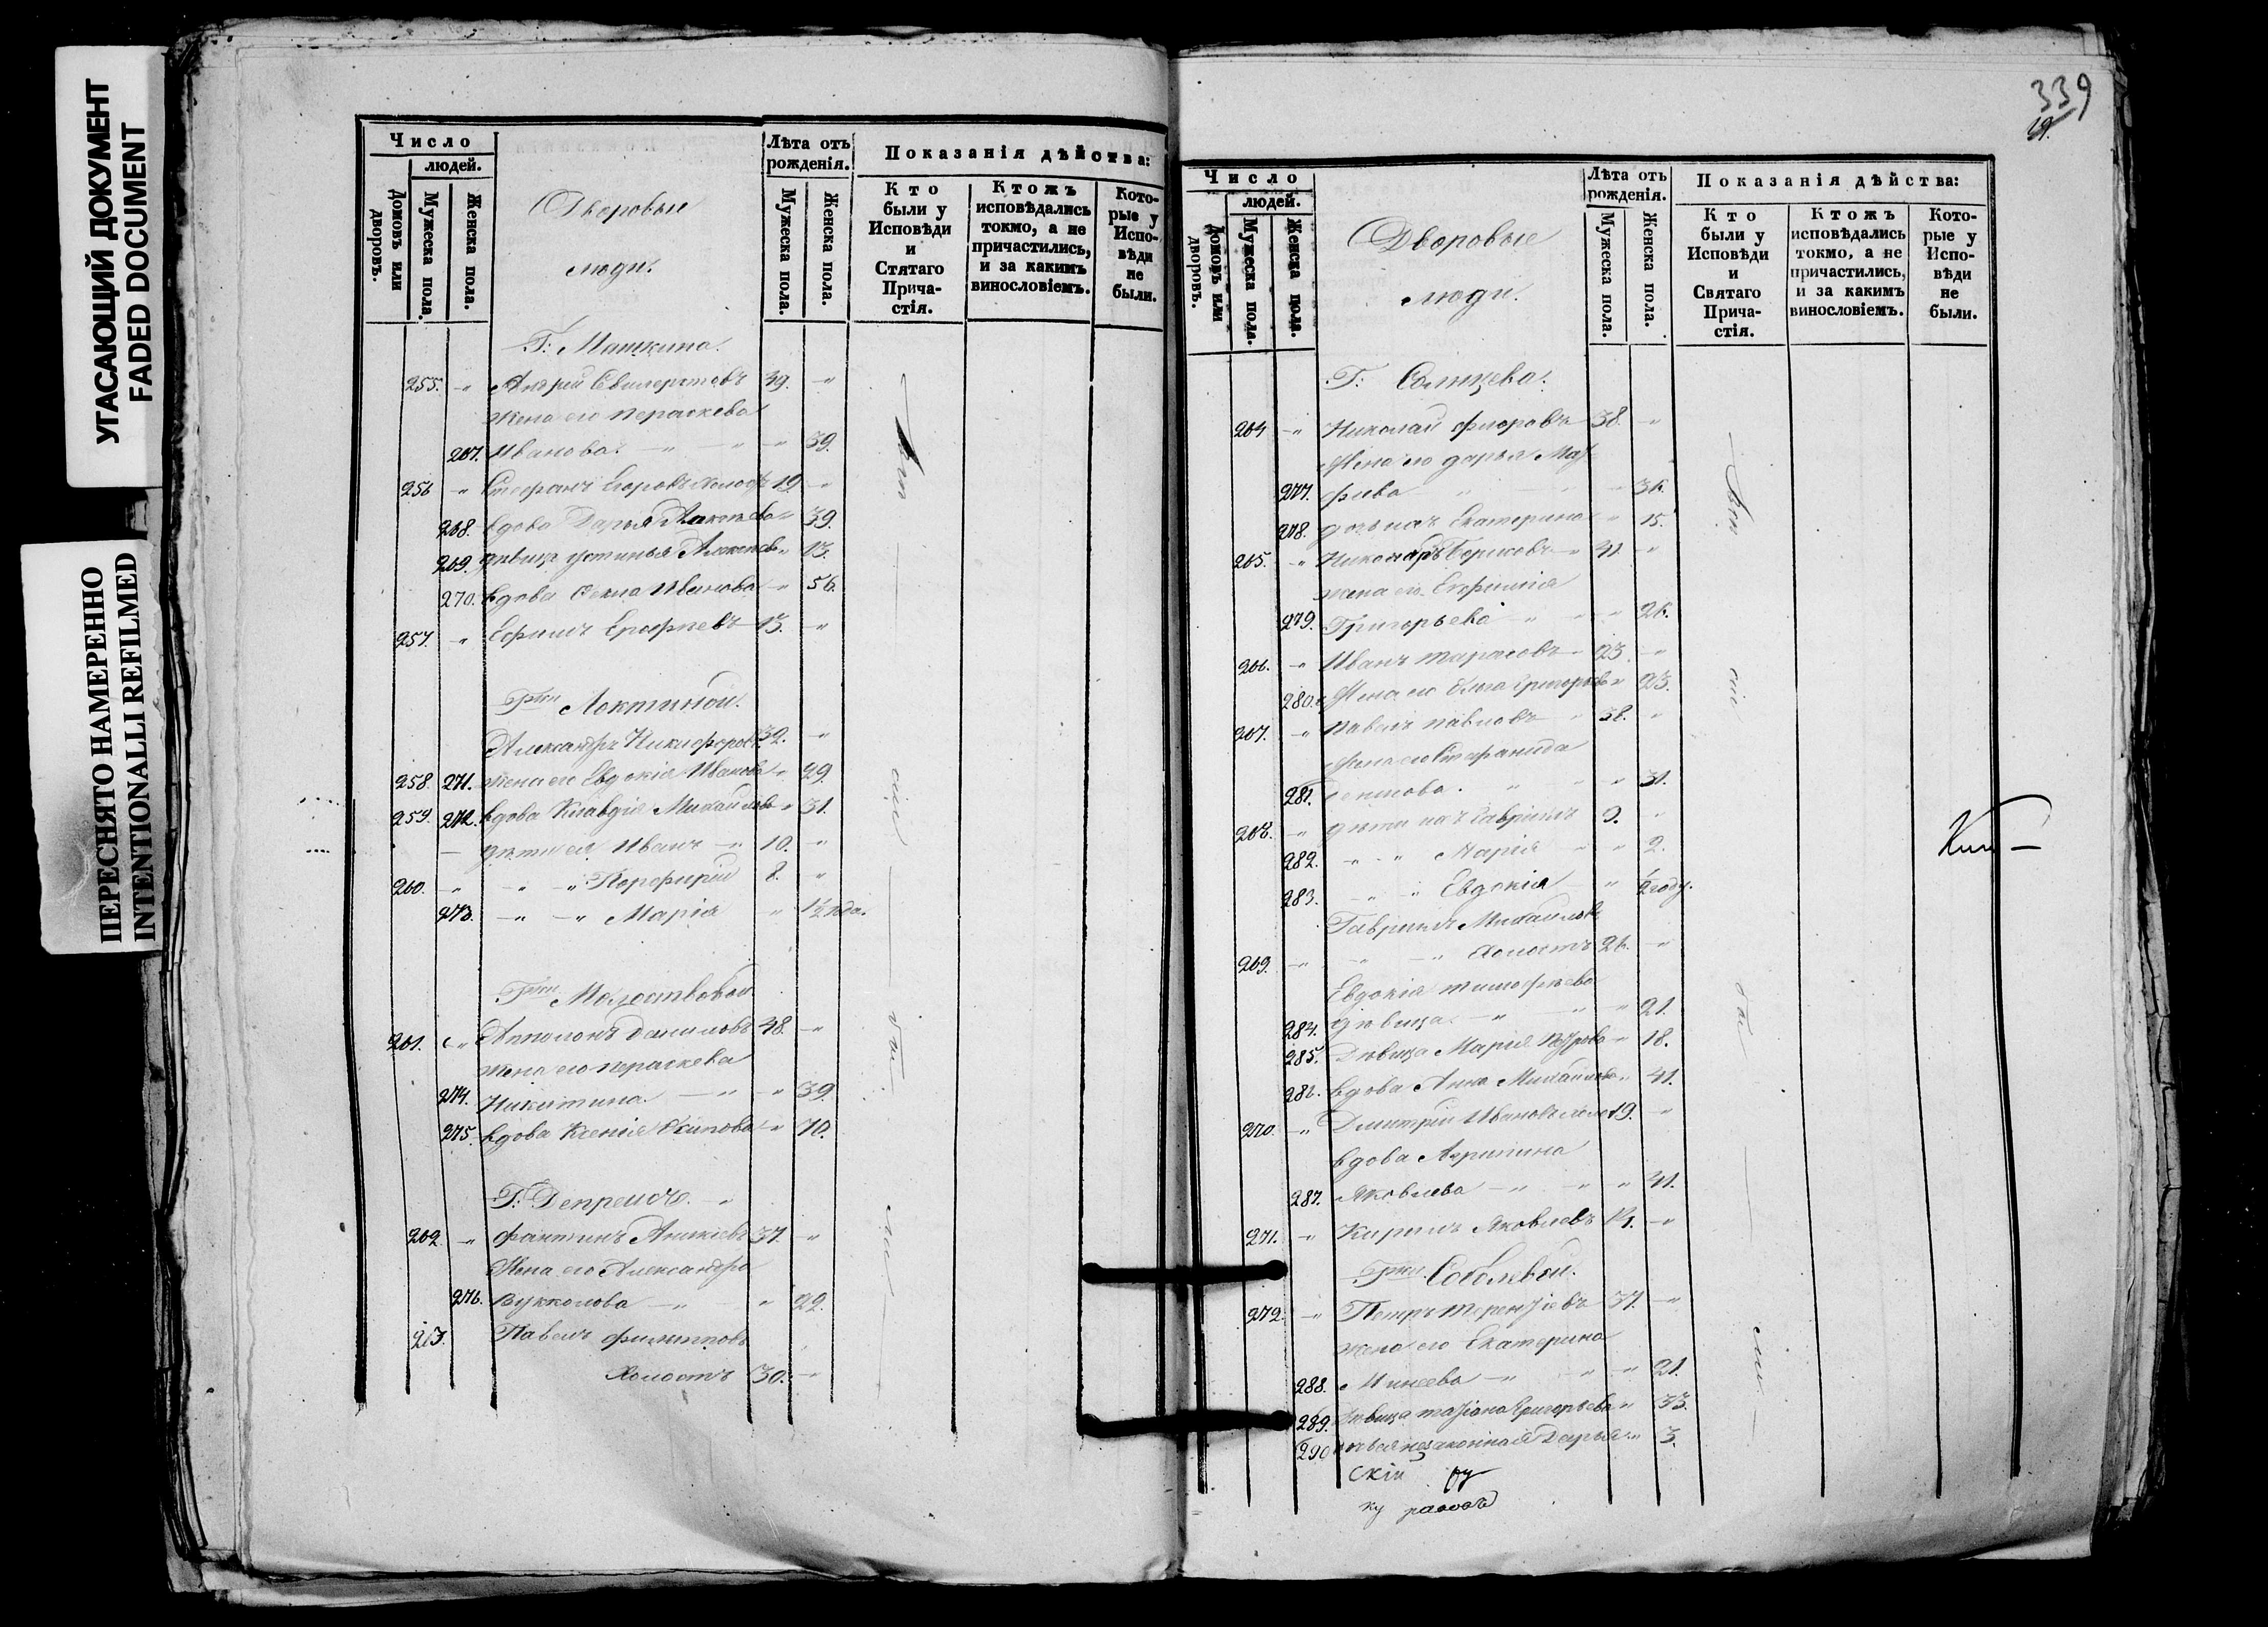 УГАСАЮЩИЙ ДОКУМЕНТ
FADED DOCUMENT
ПЕРЕСНЯТО НАМЕРЕННО
INTENTIONALLI REFILMED
Число
людей.
Домовъ или дворовъ.
Мужеска пола.
Женска пола.
Дворовые
люди.
Лѣта отъ
рожденія.
Мужеска пола.
Женска пола.
Показанія дѣйства:
Кто
были у
Исповѣди
и
Стятаго
Прича-
стія.
Ктожъ
исповѣдались
токмо, а не
причастились,
и за какимъ
винословіемъ.
Кото-
рые у
Испо-
вѣди
не
были.
Г: Машкина.
255. " 39. "
жена его Параскева
207. Иванова. " " 39.
256 " Стефанъ Егоровъ холост 19. "
268. вдова Дарья " 39.
269. дѣвица Устинья Алексѣева " 13.
270. вдова Фекла Иванова " 56.
257. " Ефимъ Ерофѣевъ 13. "
Гжи Локтиной.
Александръ Никифоровъ 32. "
258. 271. жена его Евдокія Иванова " 29.
259. 272. вдова Клавдія Михайлова " 31.
— дѣти ея Иванъ " 10. "
260. " " " Порфирій 8. "
273. " " Марія " 1½ года.
Гжи Молоствовой
261. " Апполонъ Даниловъ 48. "
жена его Параскева
274. Никитина. " " 39.
275. вдова Ксенія Осипова " 70.
Г: Депрейсъ. "
262. " Фантинъ Аникіевъ 37. "
Жена его Александра
276. Вукколова " " 22.
263. Павелъ Филипповъ
Холостъ 30. "
Всѣ
сіи
бы
ли
339
Число
людей.
Домовъ или дворовъ.
Мужеска пола.
Женска пола.
Дворовые
люди.
Лѣта отъ
рожденія.
Мужеска пола.
Женска пола.
Показанія дѣйства:
Кто
были у
Исповѣди
и
Святаго
Прича-
стія.
Ктожъ
исповѣдались
токмо, а не
причастились,
и за какимъ
винословіемъ.
Кото-
рые у
Испо-
вѣди
не
были.
Г: Солнцева.
264 " Николай Фроловъ 38. "
Жена его Дарья Мат
277. фиева " " 36.
278. дочь ихъ Екатерина " 15.
265. " Никаноръ Борисовъ 41. "
жена его Евфимія
279. Григорьева " " 26.
266. " Иванъ Тарасовъ 23. "
280. Жена его Ольга Григорьева " 23.
267. " Павелъ Павловъ 38. "
Жена его Стефанида
281. " " 31.
268. " дѣти ихъ Гавріилъ 9. "
282. " " Марія " 2.
283. " " Евдокія " году.
Гавріилъ Михайловъ
269. " " " Холостъ 26. "
Евдокія Тимофѣева
284. дѣвица " " 21.
285. Дѣвица Марія Петрова " 18.
286. вдова Анна Михайлова " 41.
270. " Дмитрій Ивановъ холос 19. "
вдова Агрипина
287. Яковлева " " " 41.
271. " Кирилъ Яковлевъ "
Гжи. Соболевой.
272. " Петръ Терентіевъ 37. "
жена его Екатерина
288. Минеева " " 21.
289. Дѣвица Татіана Григорьева " 33.
290 дочь ея незаконная Дарья " 3.
Всѣ
сіи
бы
ли